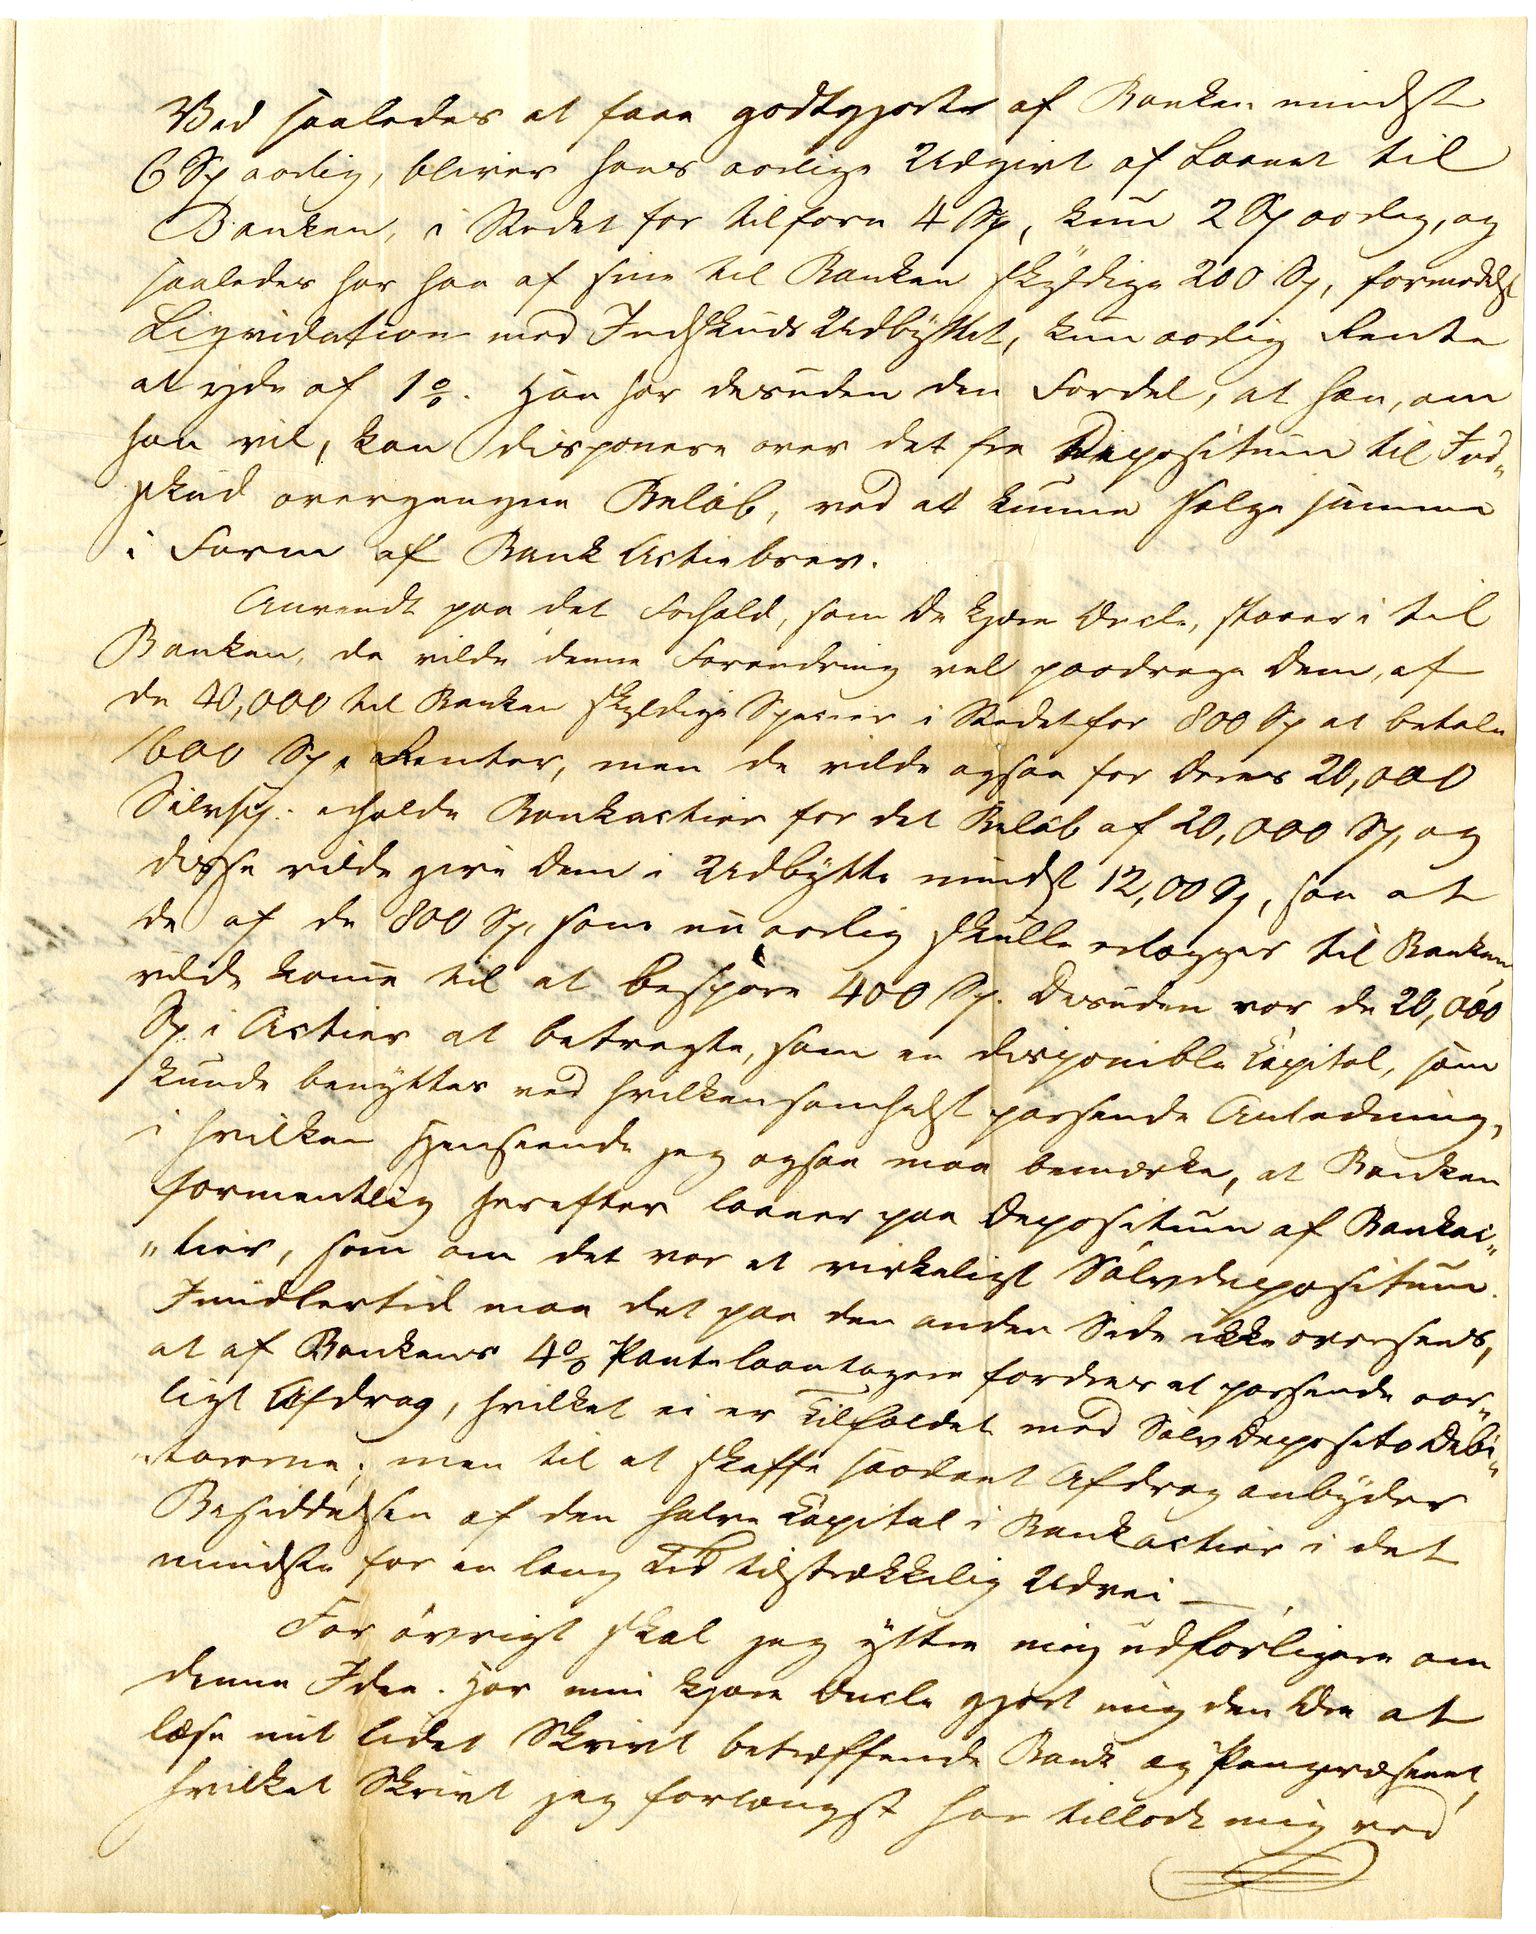 Ved saaledes at faae godtgjort af Banken mindst
6 Sp aarlig, bliver hans aarlige Udgivt af Laanet til
Banken, i Stedet for tilforn 4 Sp, kun 2 Sp aarlig, og
saaledes har han af sine til Banken skyldige 200 Sp, formedelst
Liqvidation med Indskuds Udbyttet, kun aarlig Rente
at yde af 1 %. Han har desuden den Fordel, at han, om
han vil, kan disponere over det fra Depositum til Ind„
skud overgangne Beløb, ved at kunne sælge samme
i Form af Bank Actiebrev.
Anvendt paa det Forhold, som De kjære Oncle, staaer i til
Banken, da vilde denne Forandring vel paadrage Dem, af
de 40,000 til Banken skyldige Specier i Stedet for 800 Sp at betale
1600 Sp. Renter, men de vilde ogsaa for Deres 20,000
Sølvsp. erholde Bankactier for det Beløb af 20,000 Sp, og
disse vilde give Dem i Udbytte mindst 12,00 Sp, saa at
de af de 800 Sp, som nu aarlig skulle erlægges til Banken,
vilde komme til at bespare 400 Sp. Desuden var de 20,000
Sp. i Actier at betragte, som en disponible Capital, som
kunde benyttes ved hvilkensomhelst passende Anledning,
i hvilken Henseende jeg ogsaa maa bemærke, at Banken
formentlig herefter laaner paa Depositum af Bankac„
„tier, som om det var et virkeligt Sølvdepositum.
Imidlertid maa det paa den anden Side ikke oversees,
at af Bankens 4 % Pantelaantagere fordres et passende aar„
ligt Afdrag, hvilket ei er Tilfældet med Sølv Deposito Debi„
„torerne; men til at skaffe saadant Afdrag anbyder
Besiddelsen af den halve Capital i Bankactier i det
mindste for en lang Tid tilstrækkelig Udvei —
For øvrigt skal jeg yttre mig udførligere om
denne Idee. Har min kjære Oncle gjort mig den Ære at
læse mit lidet Skrivt betræffende Bank og Pengevæsenet,
hvilket Skrivt jeg forlængst har tilladt mig ved